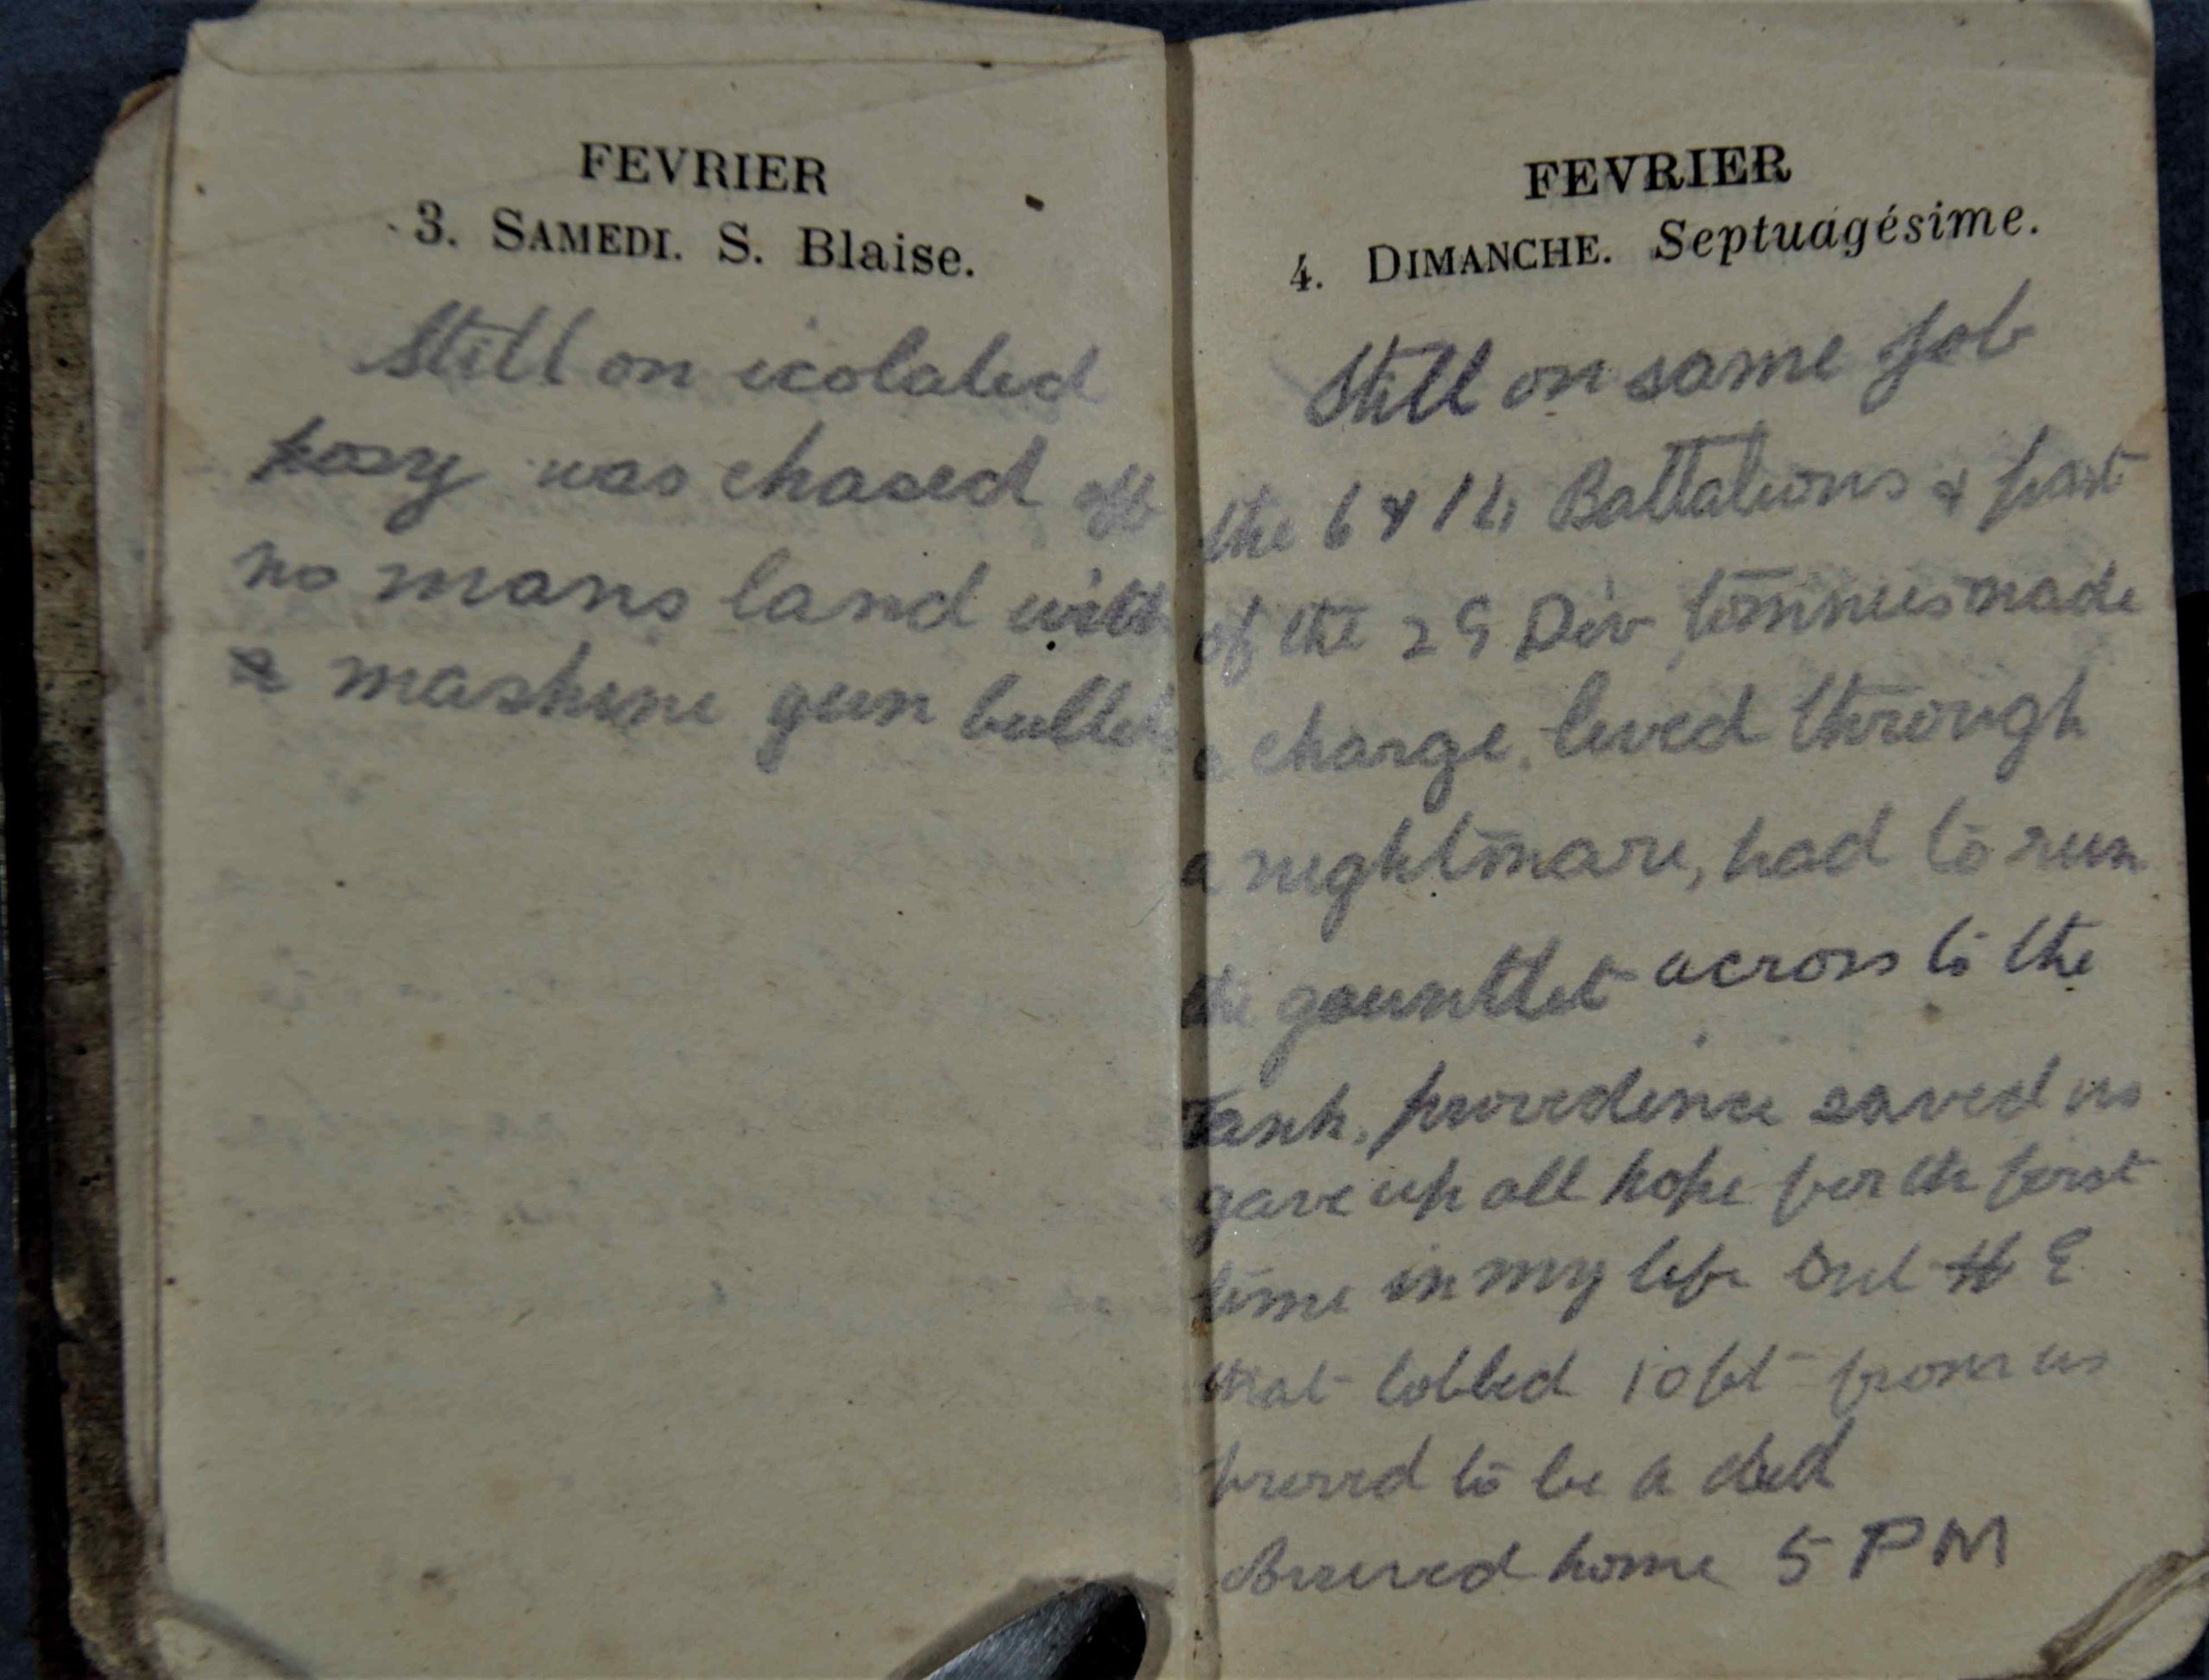 FEVRIER
3. SAMEDI. S. Blaise.
Still on icolated
posy was chased off
no mans land with
a mashine gun bullet
FEVRIER
4. DIMANCHE. Septuagésime.
Still on same job
the 6 & 14 Battalions & part
of the 29 Div Tommies made
a charge, lived through
a nightmare, had to run
the gauntlet across to the
Tank, providence saved us
gave up all hope for the first
time in my life but H E
that lobbed 10 ft from us
proved to be a dud
Arrived home 5 PM